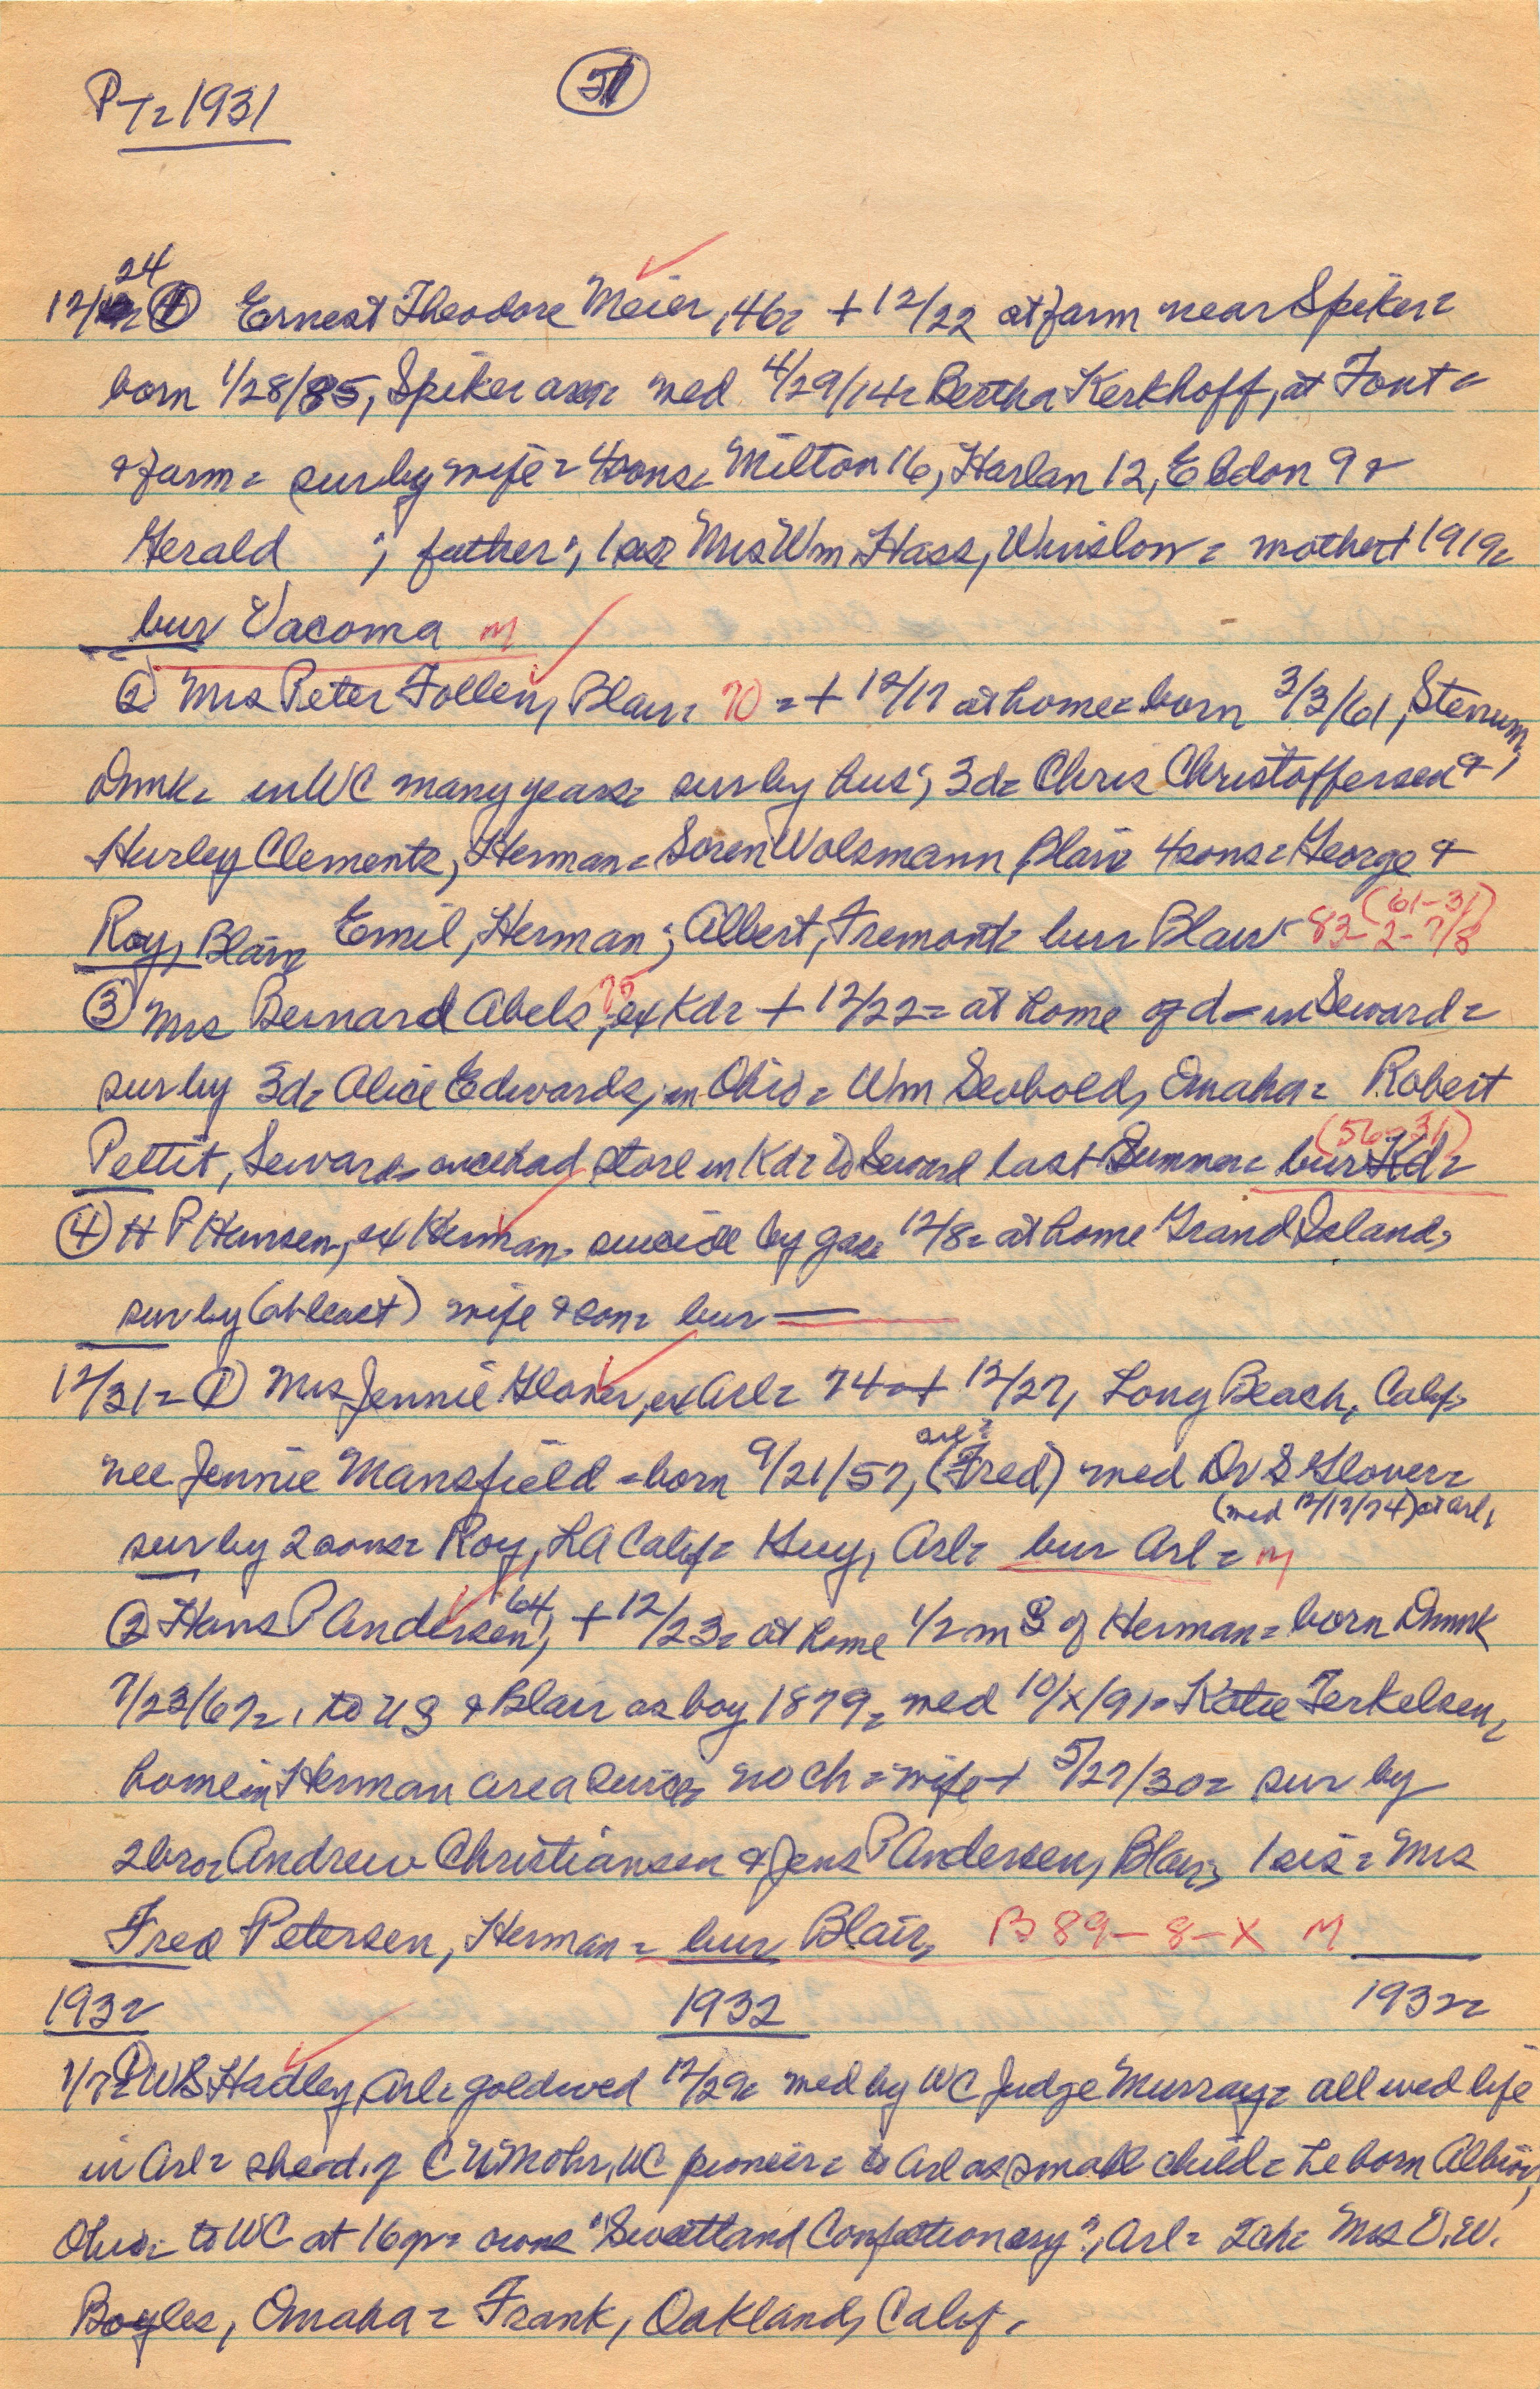 PT = 1931
12/24 = ① Ernest Theodore Meier, 46 = + 12/22 at farm near Spiker =
born 1/28/85, Spiker area = med 4/29/14 = Bertha Kerkhoff, at Font =
& farm = sur by wife = 4 sons = Milton 16, Harlan 12, Eldon 9 &
Gerald ; father ; 1 sis = Mrs Wm Hass, Winslow = mother + 1919 =
bur Vacoma M
② Mrs Peter Follen, Blair = 70 = + 12/17 at home = born 3/3/61, Stenum,
Dnmk = in WC many years = sur by hus ; 3 d = Chris Christoffersen &
Hurley Clements, Herman = Soren Wolsmann, Blair = 4 sons = George &
Roy, Blair, Emil, Herman ; Albert, Fremont = bur Blair - 83-2-7/8 (61-31)
③ Mrs Bernard Abels, 75 ex Kd = + 12/22 = at home of d = in Seward =
sur by 3 d = Alice Edwards, in Ohio = Wm Seobold, Omaha = Robert
Pettit, Seward = once had store in Kd = to Seward last Summer = bur Kd = (56-31)
④ H P Hansen, ex Herman = suicide by gas 12/8 = at home Grand Island,
sur by (at least) wife & son = bur —
12/31 = ① Mrs Jennie Glover, ex Arl = 74 = + 12/27, Long Beach, Calif,
nee Jennie Mansfield = born 9/21/57, (Fred) arl = med Dr S Glover =
(med 12/17/74) at Arl,
sur by 2 sons = Roy, LA Calif = Guy, Arl = bur Arl = M
② Hans P Andersen, 64, + 12/23 = at home 1/2 m S of Herman = born Dnmk
7/23/67 =, to US & Blair as boy 1879 = med 10/X/91 = Katie Terkelsen,
home in Herman area since = no ch = wife + 5/27/30 = sur by
2 bro = Andrew Christiansen & Jens P Andersen, Blair, 1 sis = Mrs
Fred Petersen, Herman = bur Blair, B 89-8-X M
1932 1932 1932
1/7 = ① W S Hadley, Arl = gold wed 12/29 = med by WC Judge Murray = all wed life
in Arl = she = d. of C W Mohr, WC pioneer = to Arl as small child = he born Albion,
Ohio = to WC at 16 yr = owns "Sweetland Confectionary", Arl = 2 ch = Mrs O. W.
Boyles, Omaha = Frank, Oakland, Calif.